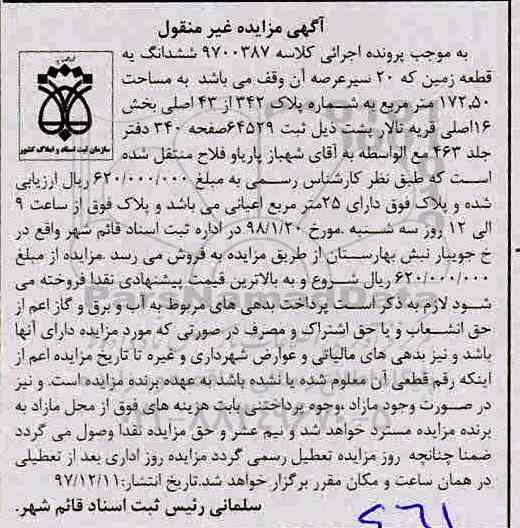 آگهی مزایده غیر منقول
به موجب پرونده اجرائی کلاسه ۹۷۰۰۳۸۷ ششدانگ یه
قطعه زمین که ۲۰ سیرعرصه آن وقف می باشد به مساحت
۱۷۲,۵۰ متر مربع به شماره پلاک ۳۴۲ از ۴۳ اصلی بخش
۱۶اصلی قریه تالار پشت ذیل ثبت ۶۴۵۲۹صفحه ۳۴۰ دفتر
جلد ۴۶۳ مع الواسطه به آقای شهباز پاریاو فلاح منتقل شده
است که طبق نظر کارشناس رسمی به مبلغ ۶۲۰/۰۰۰/۰۰۰ ریال ارزیابی
شده و پلاک فوق دارای ۲۵متر مربع اعیانی می باشد و پلاک فوق از ساعت ۹
الی ۱۲ روز سه شنبه .مورخ ۹۸/۱/۲۰ در اداره ثبت اسناد قائم شهر واقع در
خ جویبار نبش بهارستان از طریق مزایده به فروش می رسد .مزایده از مبلغ
۶۲۰/۰۰۰/۰۰۰ ریال شروع و به بالاترین قیمت پیشنهادی نقدا فروخته می
شود لازم به ذکر است پرداخت بدهی های مربوط به آب و برق و گاز اعم از
حق انشعاب و یا حق اشتراک و مصرف در صورتی که مورد مزایده دارای آنها
باشد و نیز بدهی های مالیاتی و عوارض شهرداری و غیره تا تاریخ مزایده اعم از
اینکه رقم قطعی آن معلوم شده یا نشده باشد به عهده برنده مزایده است. و نیز
در صورت وجود مازاد ،وجوه پرداختی بابت هزینه های فوق از محل مازاد به
برنده مزایده مسترد خواهد شد و نیم عشر و حق مزایده نقدا وصول می گردد
ضمنا چنانچه روز مزایده تعطیل رسمی گردد مزایده روز اداری بعد از تعطیلی
در همان ساعت و مکان مقرر برگزار خواهد شد.تاریخ انتشار:۹۷/۱۲/۱۱
سلمانی رئیس ثبت اسناد قائم شهر.
سازمان ثبت اسناد و املاک کشور
ParsNamadData